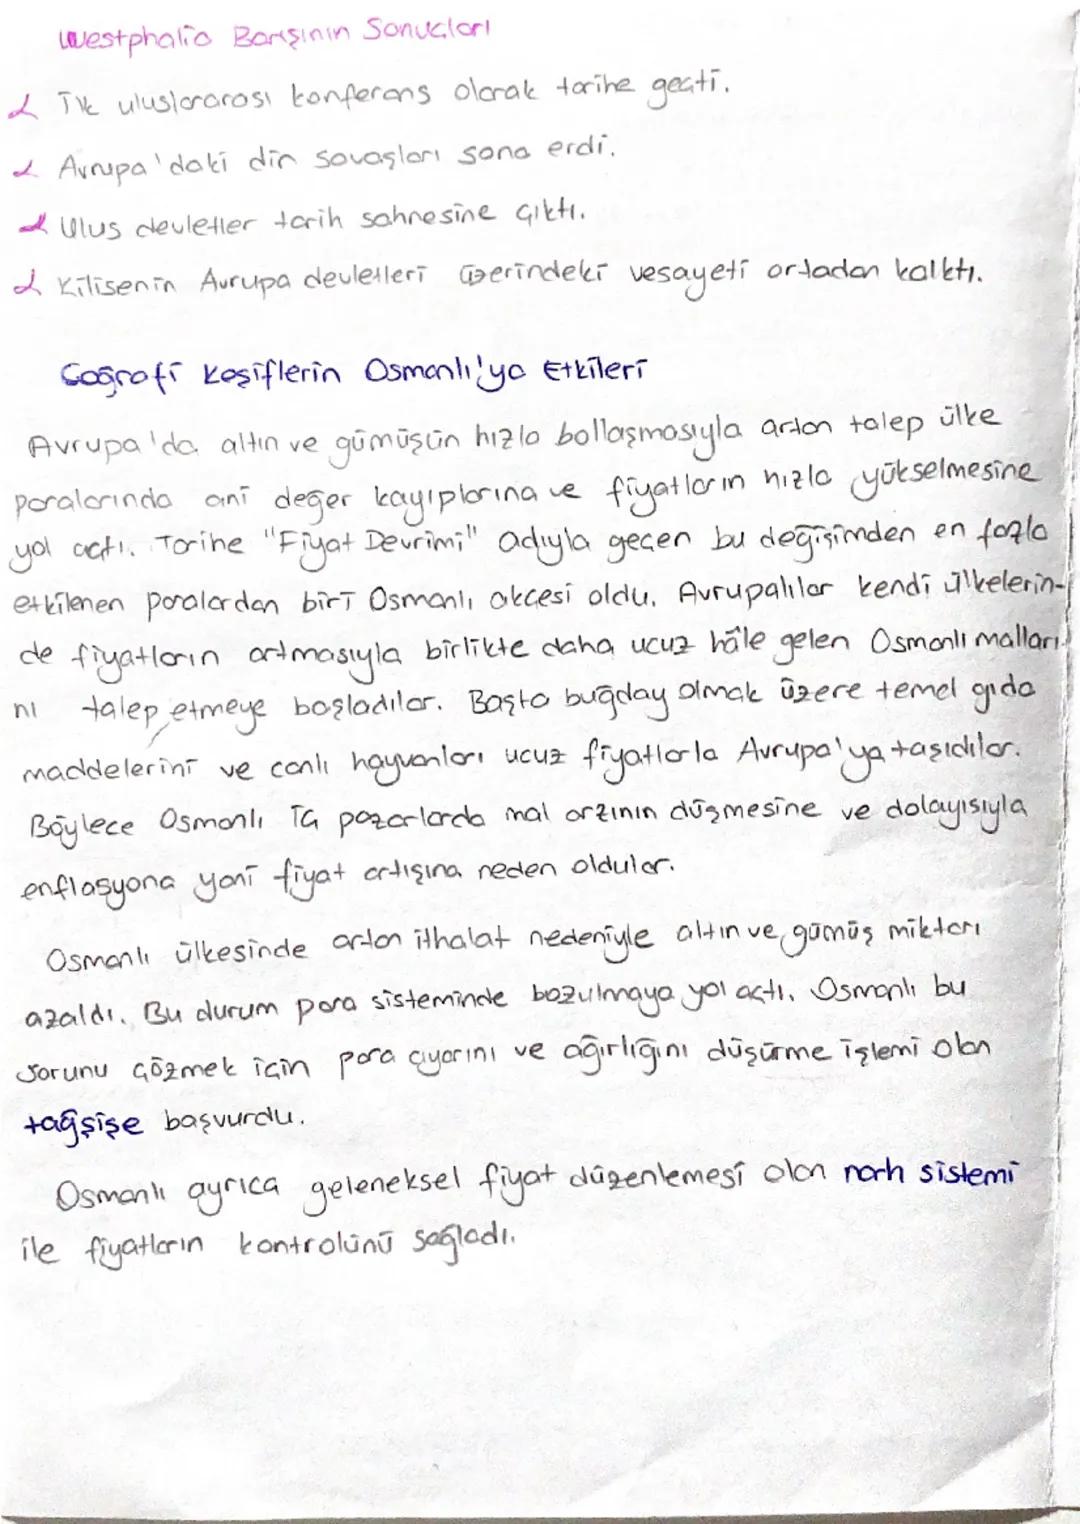 Westphalia Barışının Sonuçları
İlk uluslararası konferans olarak tarihe geçti.
Avrupa'daki din savaşları sona erdi.
Ulus devletler tarih sahnesine çıktı.
Kilisenin Avrupa devletleri üzerindeki vesayeti ortadan kalktı.
Coğrafi Keşiflerin Osmanlı'ya Etkileri
Avrupa'da altın ve gümüşün hızla bollaşmasıyla artan talep ülke
paralarında ani değer kayıplarına ve fiyatların hızla yükselmesine
yol açtı. Tarihe "Fiyat Devrimi" adıyla geçen bu değişimden en fazla
etkilenen paralardan biri Osmanlı akçesi oldu. Avrupalılar kendi ülkelerin-
de fiyatların artmasıyla birlikte daha ucuz hâle gelen Osmanlı malları-
nı talep etmeye başladılar. Başta buğday olmak üzere temel gıda
maddelerini ve canlı hayvanları ucuz fiyatlarla Avrupa'ya taşıdılar.
Böylece Osmanlı iç pazarlarda mal arzının düşmesine ve dolayısıyla
enflasyona yani fiyat artışına neden oldular.
Osmanlı ülkesinde artan ithalat nedeniyle altın ve gümüş miktarı
azaldı. Bu durum para sisteminde bozulmaya yol açtı. Osmanlı bu
sorunu çözmek için para ayarını ve ağırlığını düşürme işlemi olan
tağşişe başvurdu.
Osmanlı ayrıca geleneksel fiyat düzenlemesi olan narh sistemi
ile fiyatların kontrolünü sağladı.